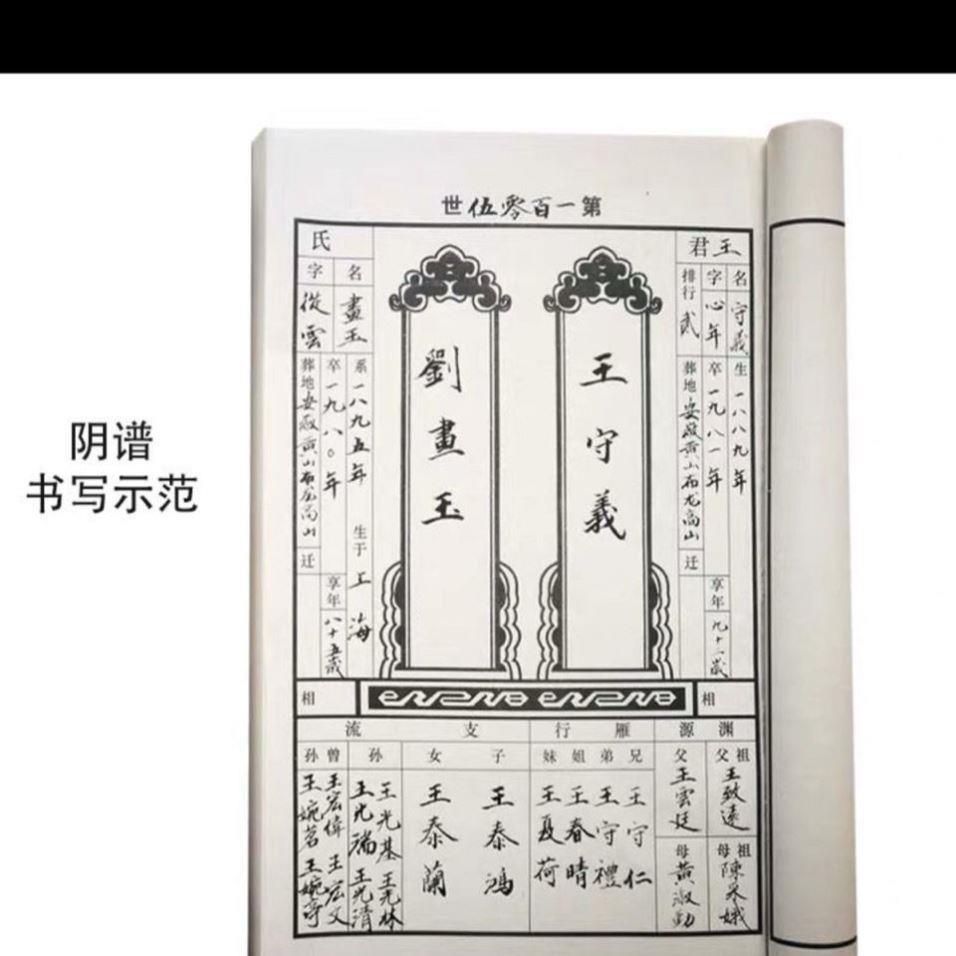 阴谱
书写示范
第一百零伍世
君王
名守義
字心年
排行貳
生一八八九年
卒一九八一年
葬地安徽黄山市龙高山
迁
享年九十二歲
王守義
劉畫玉
氏
名畫玉
字從雲
系一八九五年
生于上海
卒一九八〇年
葬地安徽黄山市龙高山
迁
享年八十五歲
相
相
渊源
祖父王致遠
祖母陳
父王雲廷
母黄淑勤
雁行
兄弟姐妹
王守仁
王守禮
王春晴
王夏荷
支流
子王泰鴻
女王泰蘭
孙
王光基 王光林
王光瑞 王光清
曾孙
王宏偉 王宏文
王婉茗 王婉亭